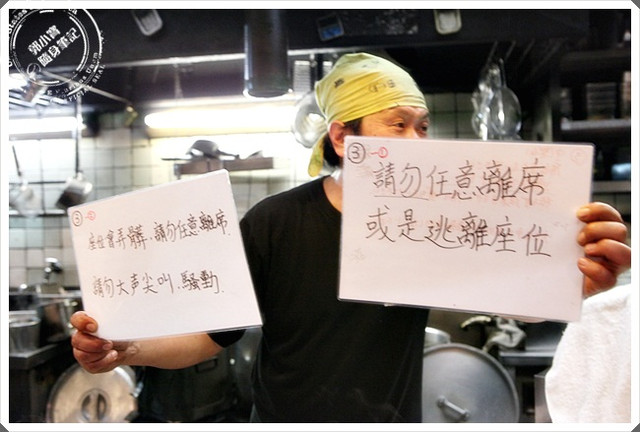 郭小寶
隨身筆記
③ 一①
請勿任意離席
或是逃離座位
座位會弄髒、請勿任意離席.
請勿大声尖叫、騷動.